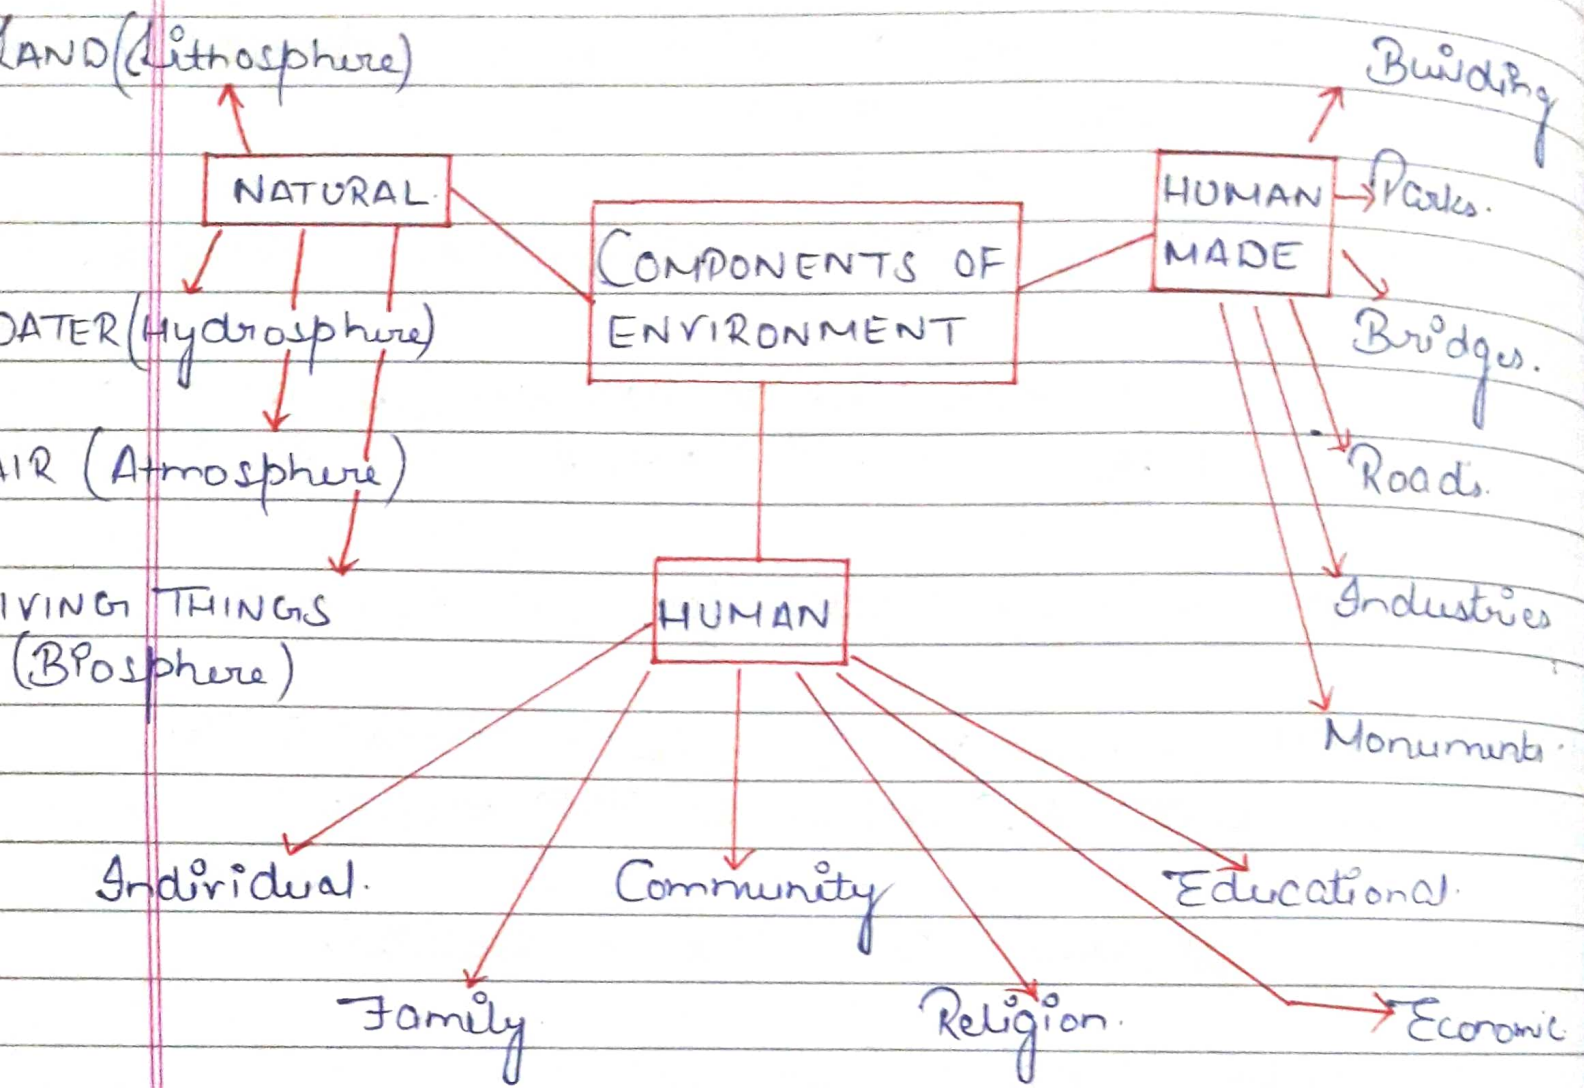 LAND (Lithosphere)
NATURAL
WATER (Hydrosphere)
AIR (Atmosphere)
LIVING THINGS
(Biosphere)
COMPONENTS OF
ENVIRONMENT
HUMAN
MADE
Building
Parks.
Bridges.
Roads.
Industries
Monuments.
HUMAN
Individual.
Family
Community
Religion.
Educational.
Economic